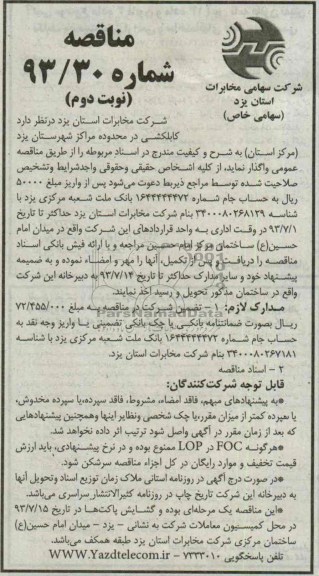 مناقصه
شماره ۹۳/۳۰
(نوبت دوم)
شرکت سهامی مخابرات
استان یزد
(سهامی خاص)
شرکت مخابرات استان یزد درنظر دارد
کابلکشی در محدوده مراکز شهرستان یزد
(مرکز استان) به شرح و کیفیت مندرج در اسناد مربوطه را از طریق مناقصه
عمومی واگذار نماید، از کلیه اشخاص حقیقی وحقوقی واجدشرایط وتشخیص
صلاحیت شده توسط مراجع ذیربط دعوت می‌شود پس از واریز مبلغ ۵۰۰۰۰
ریال به حساب جام شماره ۱۶۴۴۴۴۴۴۷۲ بانک ملت شعبه مرکزی یزد با
شناسه ۳۴۰۰۰۸۰۲۶۸۱۲۹ بنام شرکت مخابرات استان یزد حداکثر تا تاریخ
۹۳/۷/۱ در وقت اداری به واحد قراردادهای این شرکت واقع در میدان امام
حسین(ع) ساختمان مرکز امام حسین مراجعه و با ارائه فیش بانکی اسناد
مناقصه را دریافت و پس از تکمیل، آنها را مهر و امضاء نموده و به ضمیمه
پیشنهاد خود و سایر مدارک حداکثر تا تاریخ ۹۳/۷/۱۴ به دبیرخانه این شرکت
واقع در ساختمان مذکور تحویل و رسید اخذ نمایند.
مدارک لازم: ۱ - تضمین شرکت در مناقصه به مبلغ ۷۲/۴۵۵/۰۰۰
ریال بصورت ضمانتنامه بانکی یا چک بانکی تضمینی یا واریز وجه نقد به
حساب جام شماره ۱۶۴۴۴۴۴۴۷۲ بانک ملت شعبه مرکزی یزد با شناسه
۳۴۰۰۰۸۰۲۶۷۱۸۱ بنام شرکت مخابرات استان یزد.
۲ - اسناد مناقصه
قابل توجه شرکت‌کنندگان:
*به پیشنهادهای مبهم، فاقد امضاء، مشروط، فاقد سپرده،یا سپرده مخدوش،
یا بغیرده کمتر از میزان مقرر،یا چک شخصی ونظایر اینها وهمچنین پیشنهادهایی
که بعد از زمان مقرر در آگهی واصل شود ترتیب اثر داده نخواهد شد.
*هرگونه FOC در LOP ممنوع بوده و در نرخ پیشنهادی، باید ارزش
قیمت تخفیف و موارد رایگان در کل اجزاء مناقصه سرشکن شود.
*در صورت درج آگهی در روزنامه استانی ملاک زمان توزیع اسناد وتحویل آنها
به دبیرخانه این شرکت تاریخ چاپ در روزنامه کثیرالانتشار سراسری می‌باشد.
*این مناقصه یک مرحله‌ای بوده و گشایش پاکت‌ها در تاریخ ۹۳/۷/۱۵
در محل کمیسیون معاملات شرکت به نشانی - یزد - میدان امام حسین(ع)
ساختمان مرکزی شرکت مخابرات استان یزد طبقه همکف می‌باشد.
تلفن پاسخگویی ۷۲۳۳۰۱۰ - WWW.Yazdtelecom.ir